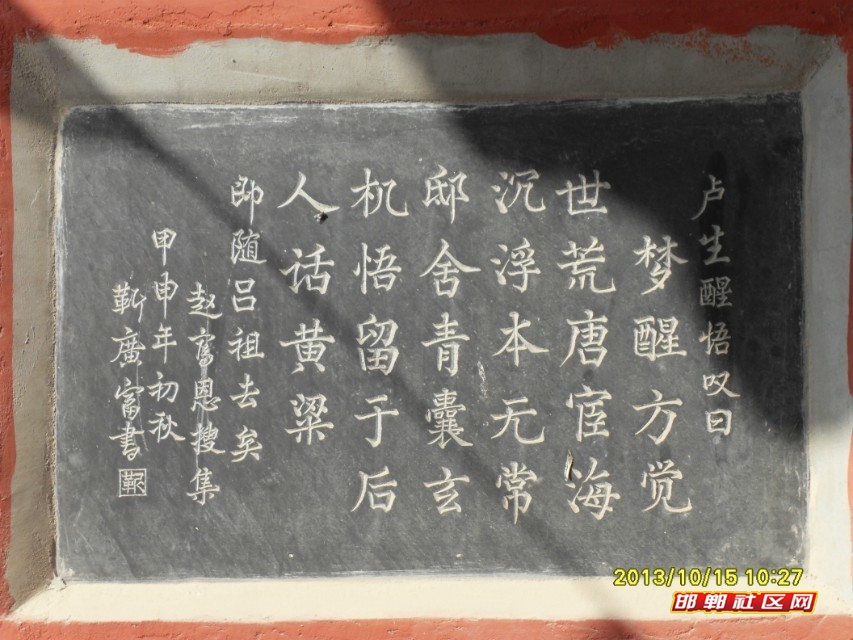 卢生醒悟叹曰
梦醒方觉
世荒唐宦海
沉浮本无常
邸舍青囊玄
机悟留于后
人话黄粱
即随吕祖去矣
赵富恩搜集
甲申年初秋
靳廣富書
靳
2013/10/15 10:27
邯郸社区网